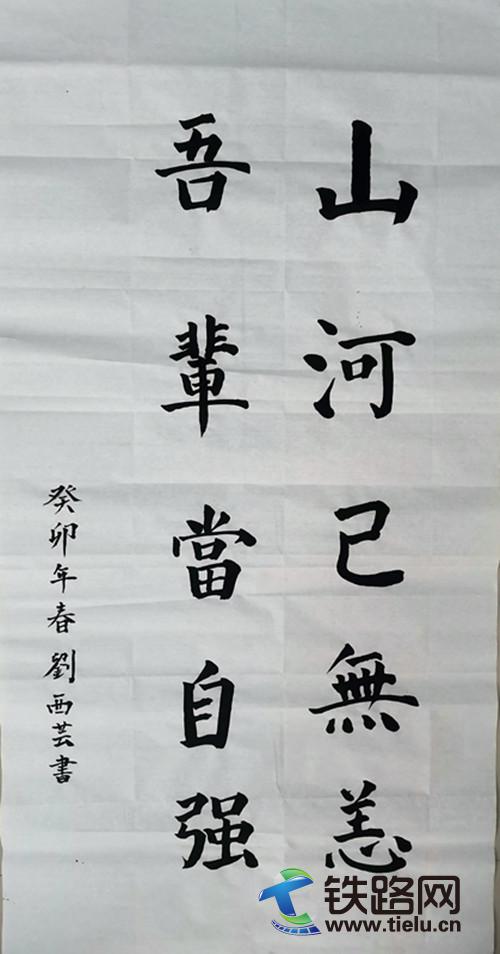 山河已無恙
吾輩當自强
癸卯年春劉西芸書
铁路网
www.tielu.cn